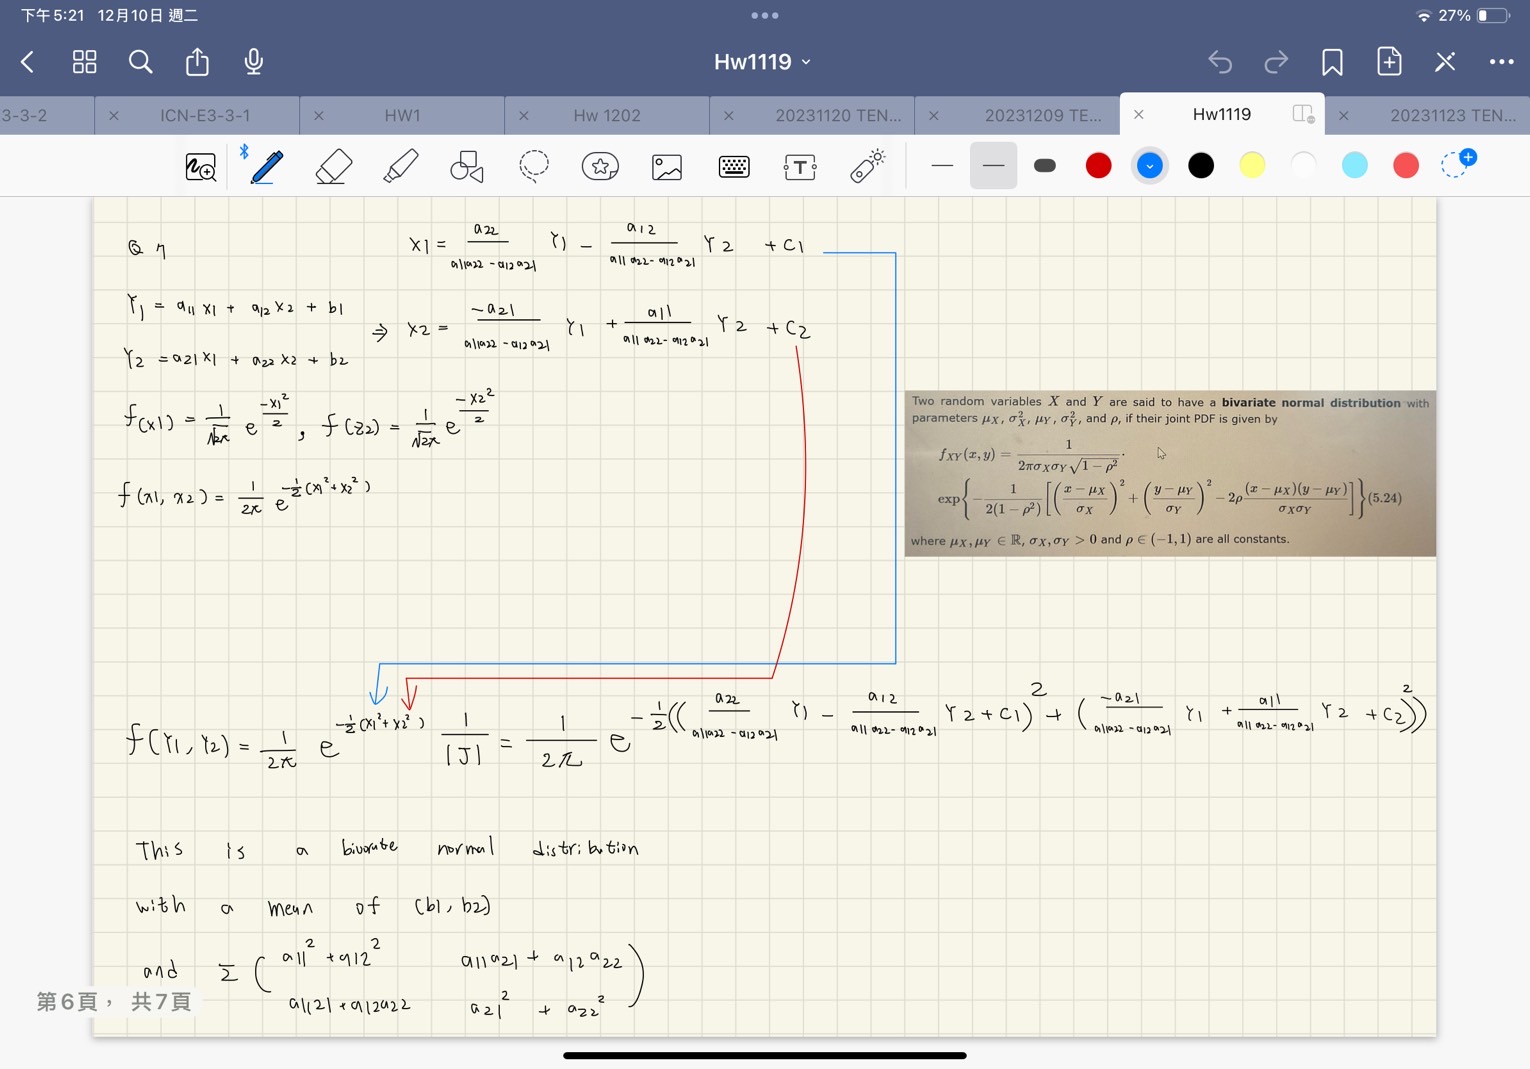 下午5:21 12月10日 週二
27%
Hw1119
3-3-2
ICN-E3-3-1
HW1
Hw 1202
20231120 TEN...
20231209 TE...
Hw1119
20231123 TEN...
Q 7
x1 = a22/(a11a22 - a12a21) Y1 - a12/(a11a22 - a12a21) Y2 + C1
Y1 = a11 x1 + a12 x2 + b1
⇒ x2 = -a21/(a11a22 - a12a21) Y1 + a11/(a11a22 - a12a21) Y2 + C2
Y2 = a21 x1 + a22 x2 + b2
f(x1) = 1/√2π e^(-x1²/2) , f(z2) = 1/√2π e^(-x2²/2)
f(x1, x2) = 1/2π e^(-1/2(x1²+x2²))
Two random variables X and Y are said to have a bivariate normal distribution with
parameters μX, σ²X, μY, σ²Y, and ρ, if their joint PDF is given by
fXY(x, y) = 1/(2πσXσY√(1 − ρ²)) ·
exp{−1/(2(1 − ρ²)) [((x − μX)/σX)² + ((y − μY)/σY)² − 2ρ (x − μX)(y − μY)/(σXσY)]} (5.24)
where μX, μY ∈ ℝ, σX, σY > 0 and ρ ∈ (−1, 1) are all constants.
f(Y1, Y2) = 1/2π e^(-1/2(x1²+x2²)) 1/|J| = 1/2π e^(-1/2((a22/(a11a22 - a12a21) Y1 - a12/(a11a22 - a12a21) Y2 + C1)² + (-a21/(a11a22 - a12a21) Y1 + a11/(a11a22 - a12a21) Y2 + C2)²))
This is a bivorate normal distribution
with a mean of (b1, b2)
and Σ ( a11² + a12² a11a21 + a12a22
a1121 + a12a22 a21² + a22² )
第6頁， 共7頁